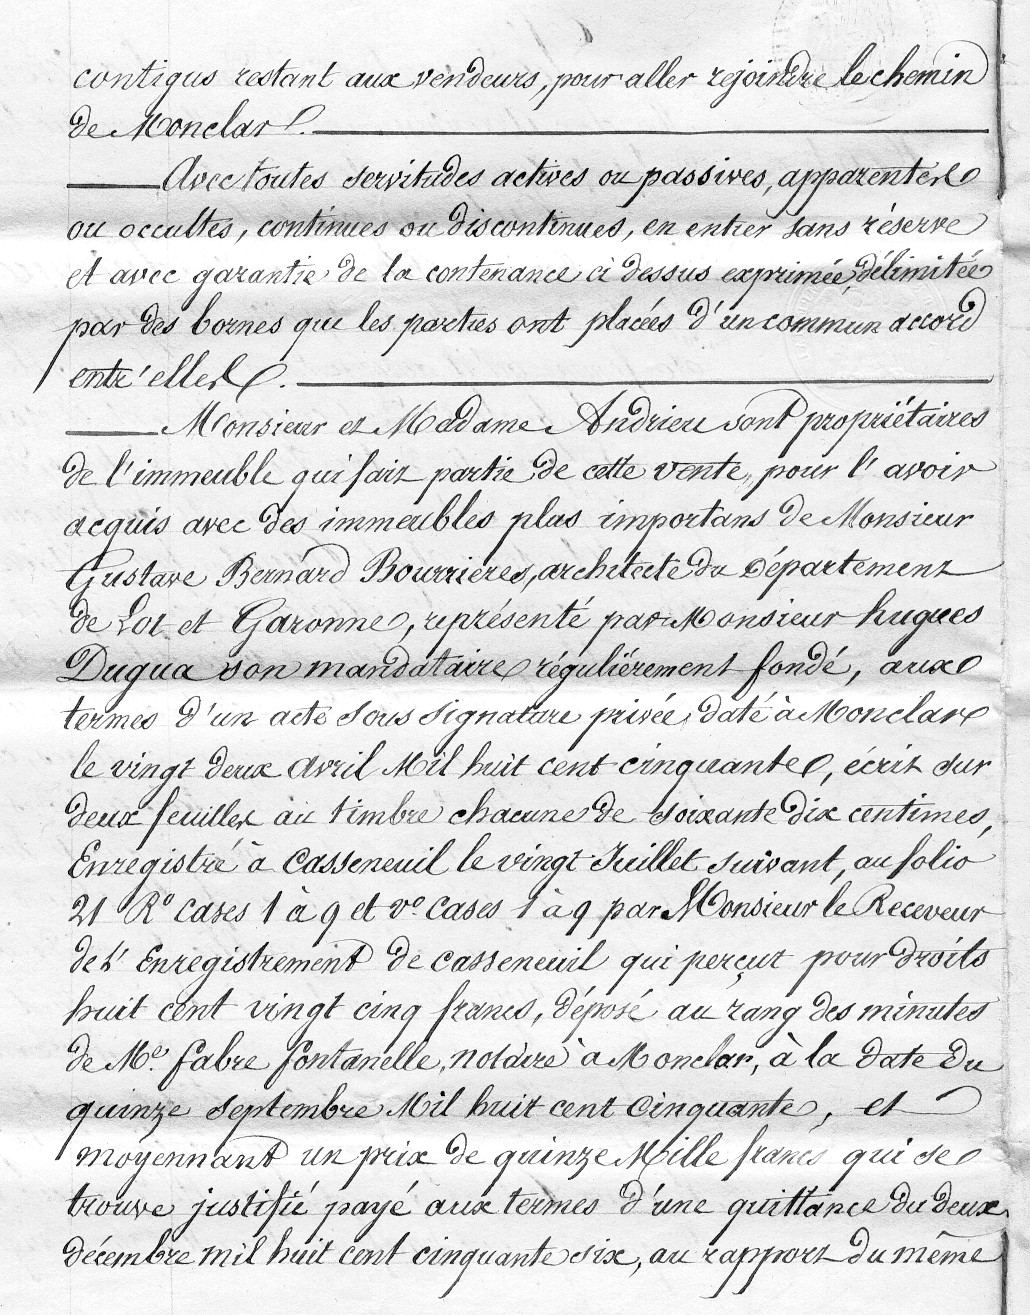 contigus restant aux vendeurs, pour aller rejoindre le chemin
de Monclar.
Avec toutes servitudes actives ou passives, apparentes
ou occultes, continues ou discontinues, en entier sans réserve
et avec garantie de la contenance ci dessus exprimée, délimitée
par des bornes que les parties ont placées d'un commun accord
entr'elles.
Monsieur et Madame Andrieu sont propriétaires
de l'immeuble qui fait partie de cette vente, pour l'avoir
acquis avec des immeubles plus importans de Monsieur
Gustave Bernard Bourrieres, architecte du Département
de Lot et Garonne, représenté par Monsieur hugues
Dugua son mandataire régulièrement fondé, aux
termes d'un acte sous signature privée, daté à Monclar
le vingt deux Avril Mil huit cent cinquante, écrit sur
deux feuilles au timbre chacune de soixante dix centimes,
Enregistré à Casseneuil le vingt Juillet suivant, au folio
21 Ro cases 1 à 9 et vo cases 1 à 9 par Monsieur le Receveur
de l'Enregistrement de Casseneuil qui perçut pour droits
huit cent vingt cinq francs, déposé au rang des minutes
de Me. fabre fontanelle, notaire à Monclar, à la date du
quinze septembre Mil huit cent Cinquante, et
moyennant un prix de quinze Mille francs qui se
trouve justifié payé aux termes d'une quittance du deux
décembre mil huit cent cinquante six, au rapport du même